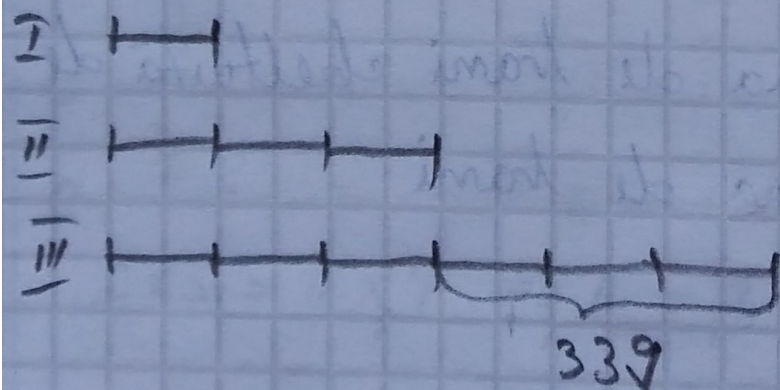 I
II
III
339